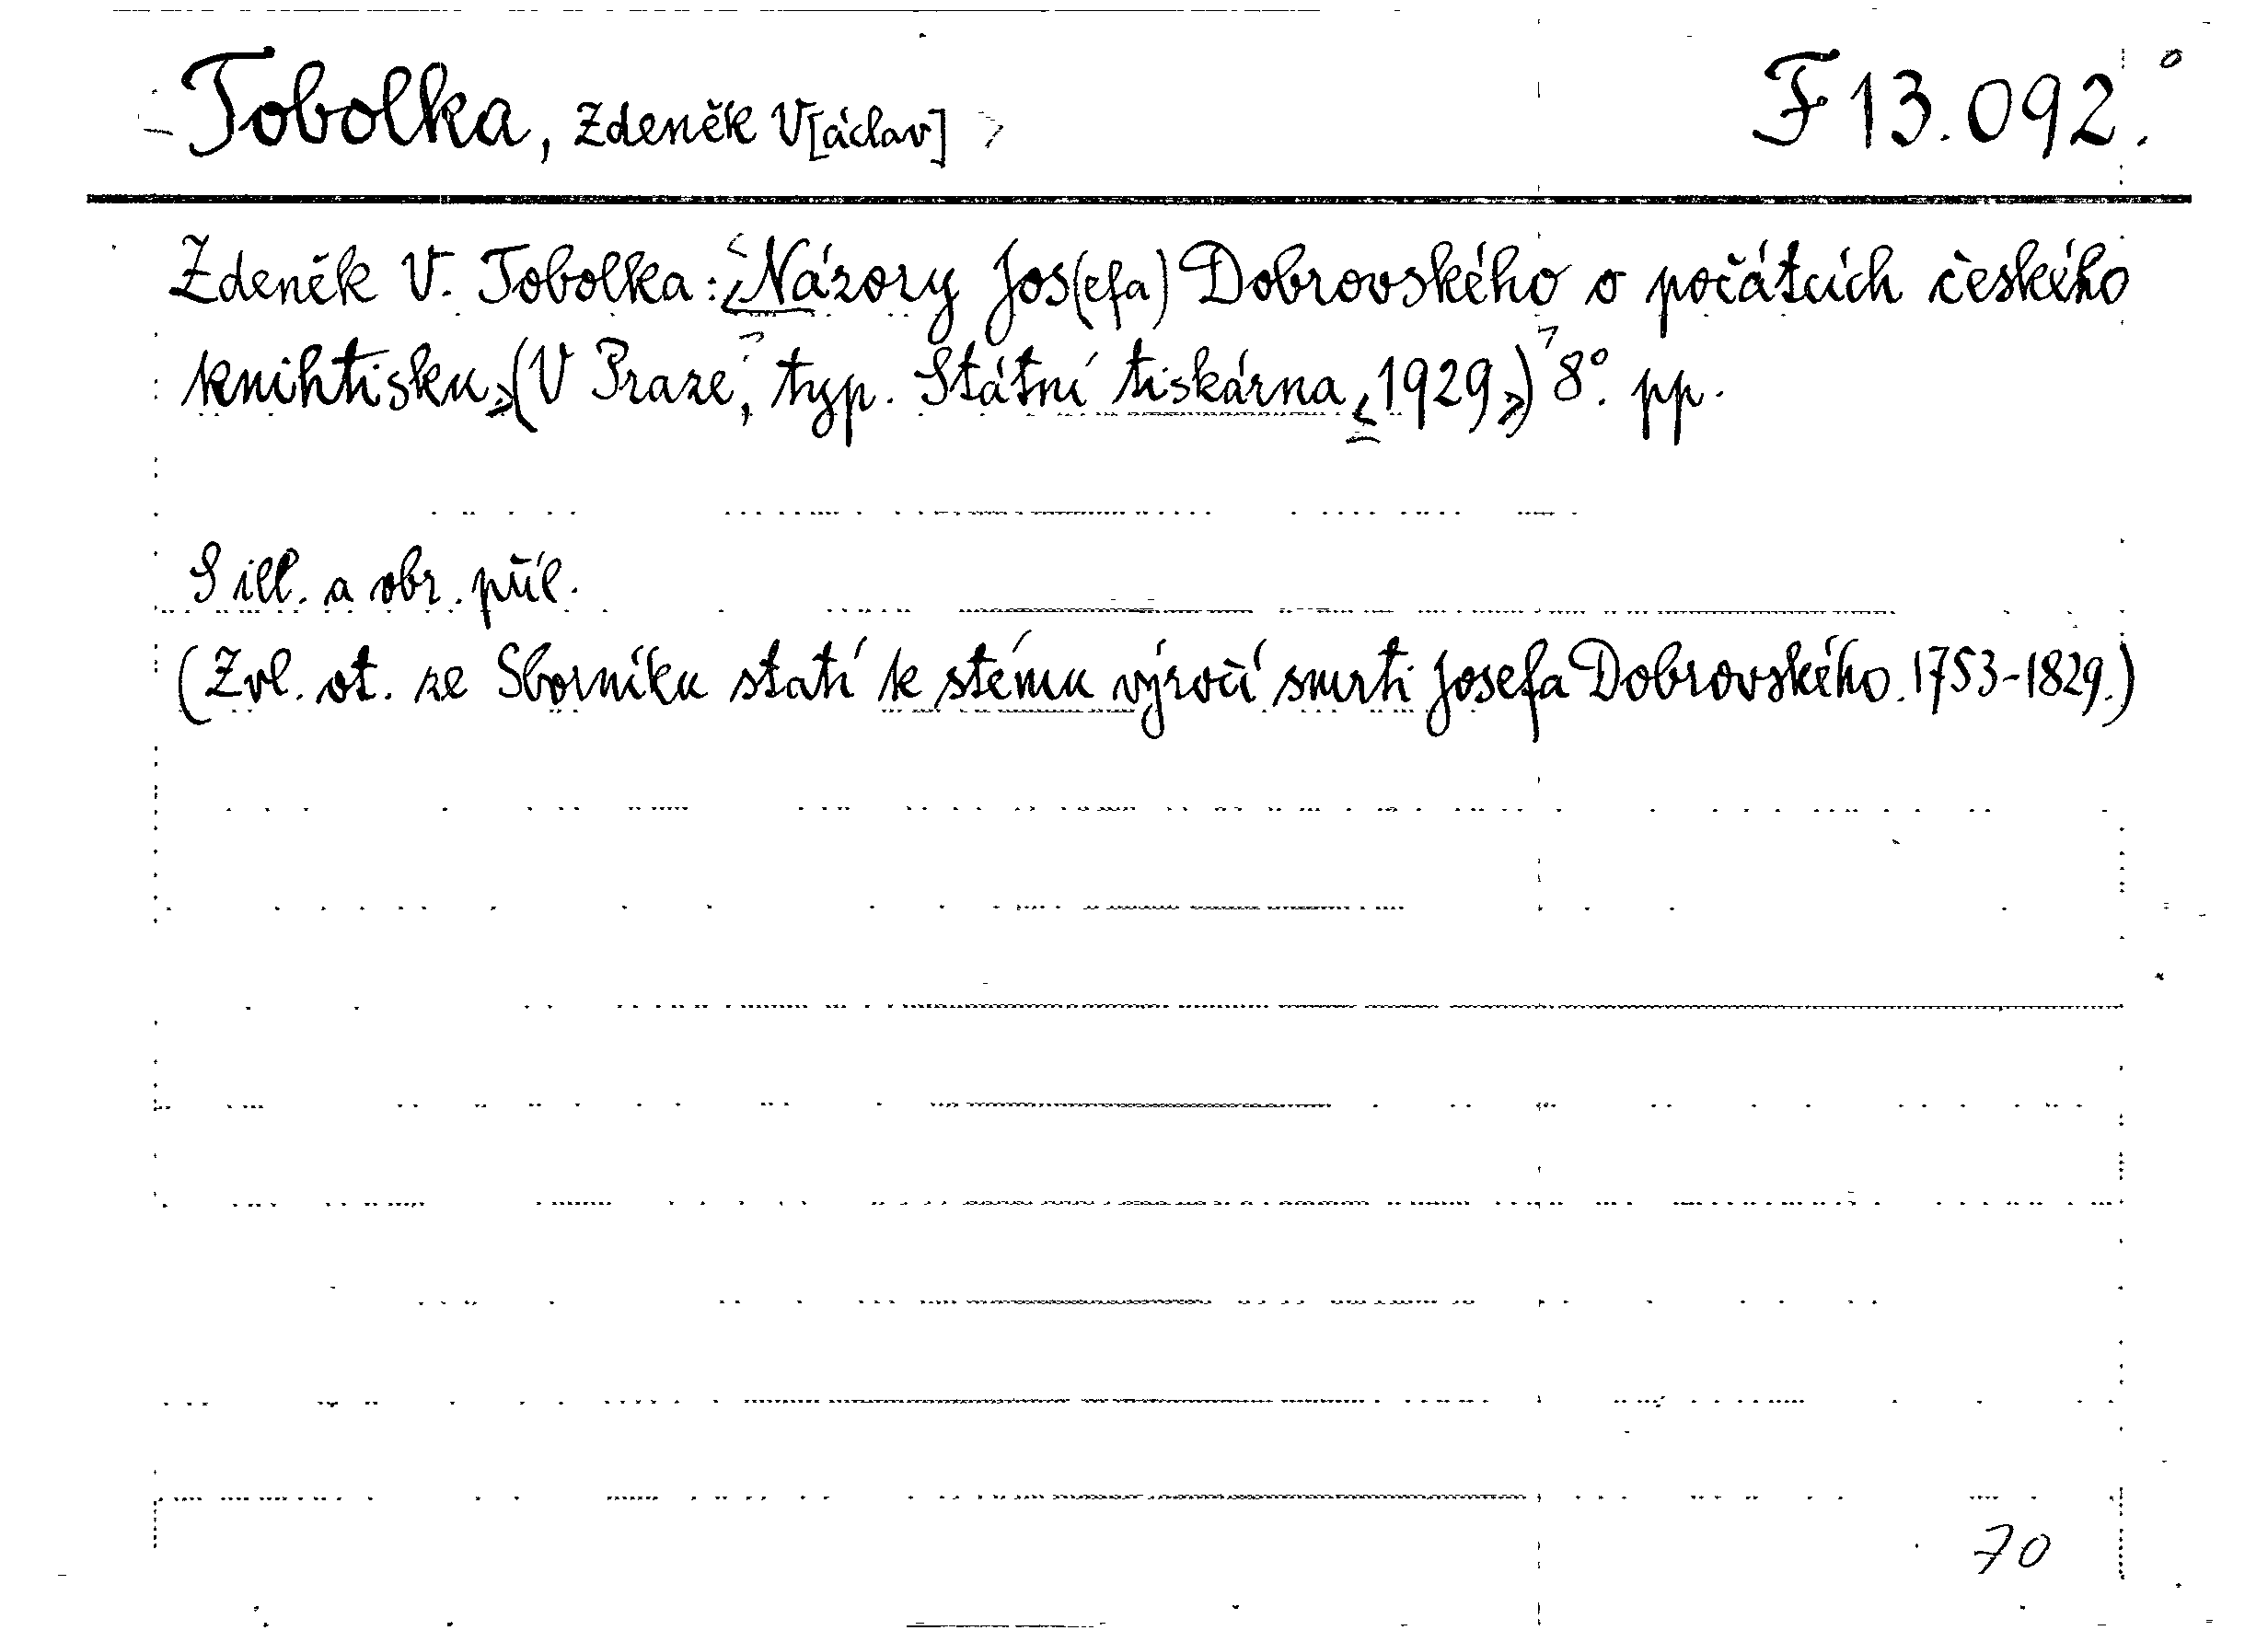 Tobolka, Zdeněk V[áclav] F 13.092.
Zdeněk V. Tobolka: Názory Jos(efa) Dobrovského o počátcích českého
knihtisku (V Praze, typ. Státní tiskárna, 1929.) 8°. pp.
S ill. a obr. příl.
(Zvl. ot. ze Sborníku statí k stému výročí smrti Josefa Dobrovského. 1753-1829.)
70